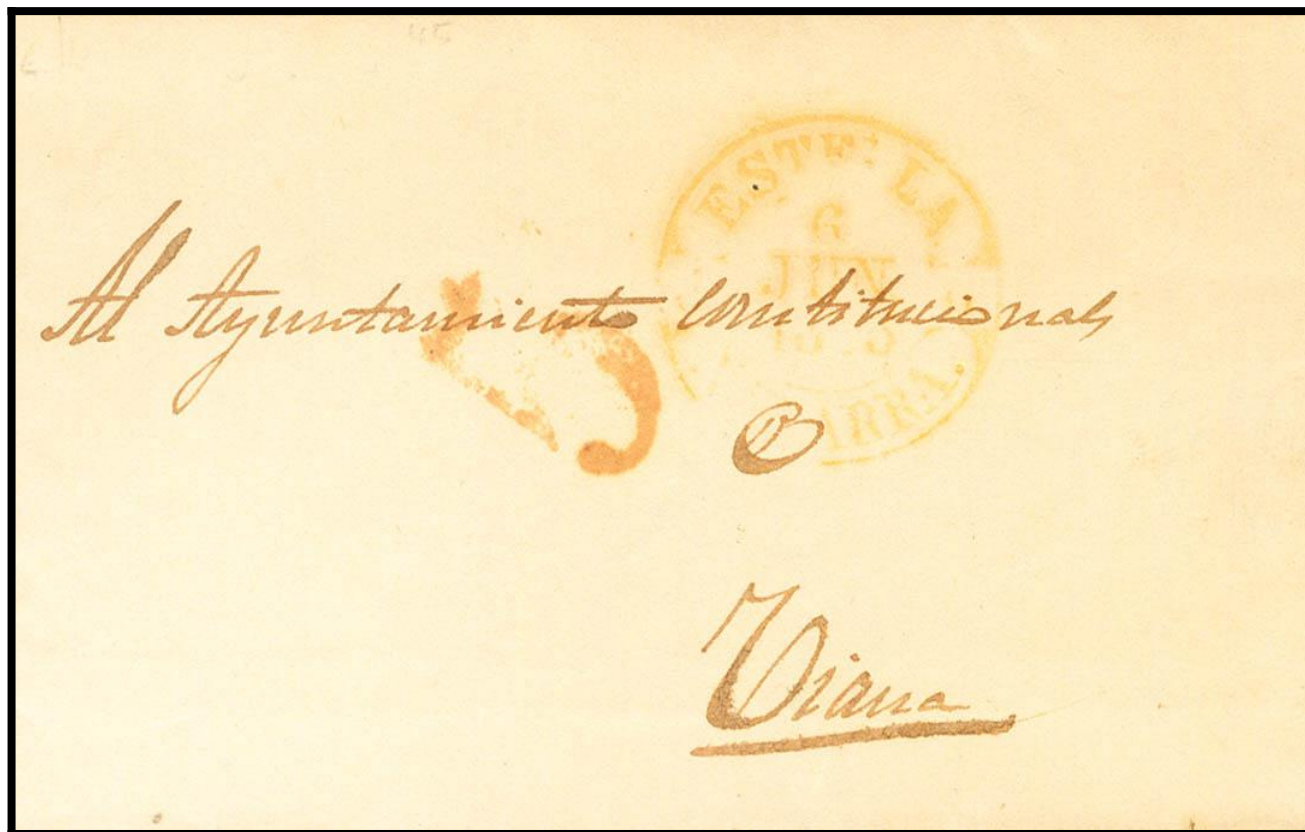 ESTE LLA
6
JUN
Al Ayuntamiento constitucional
Viana